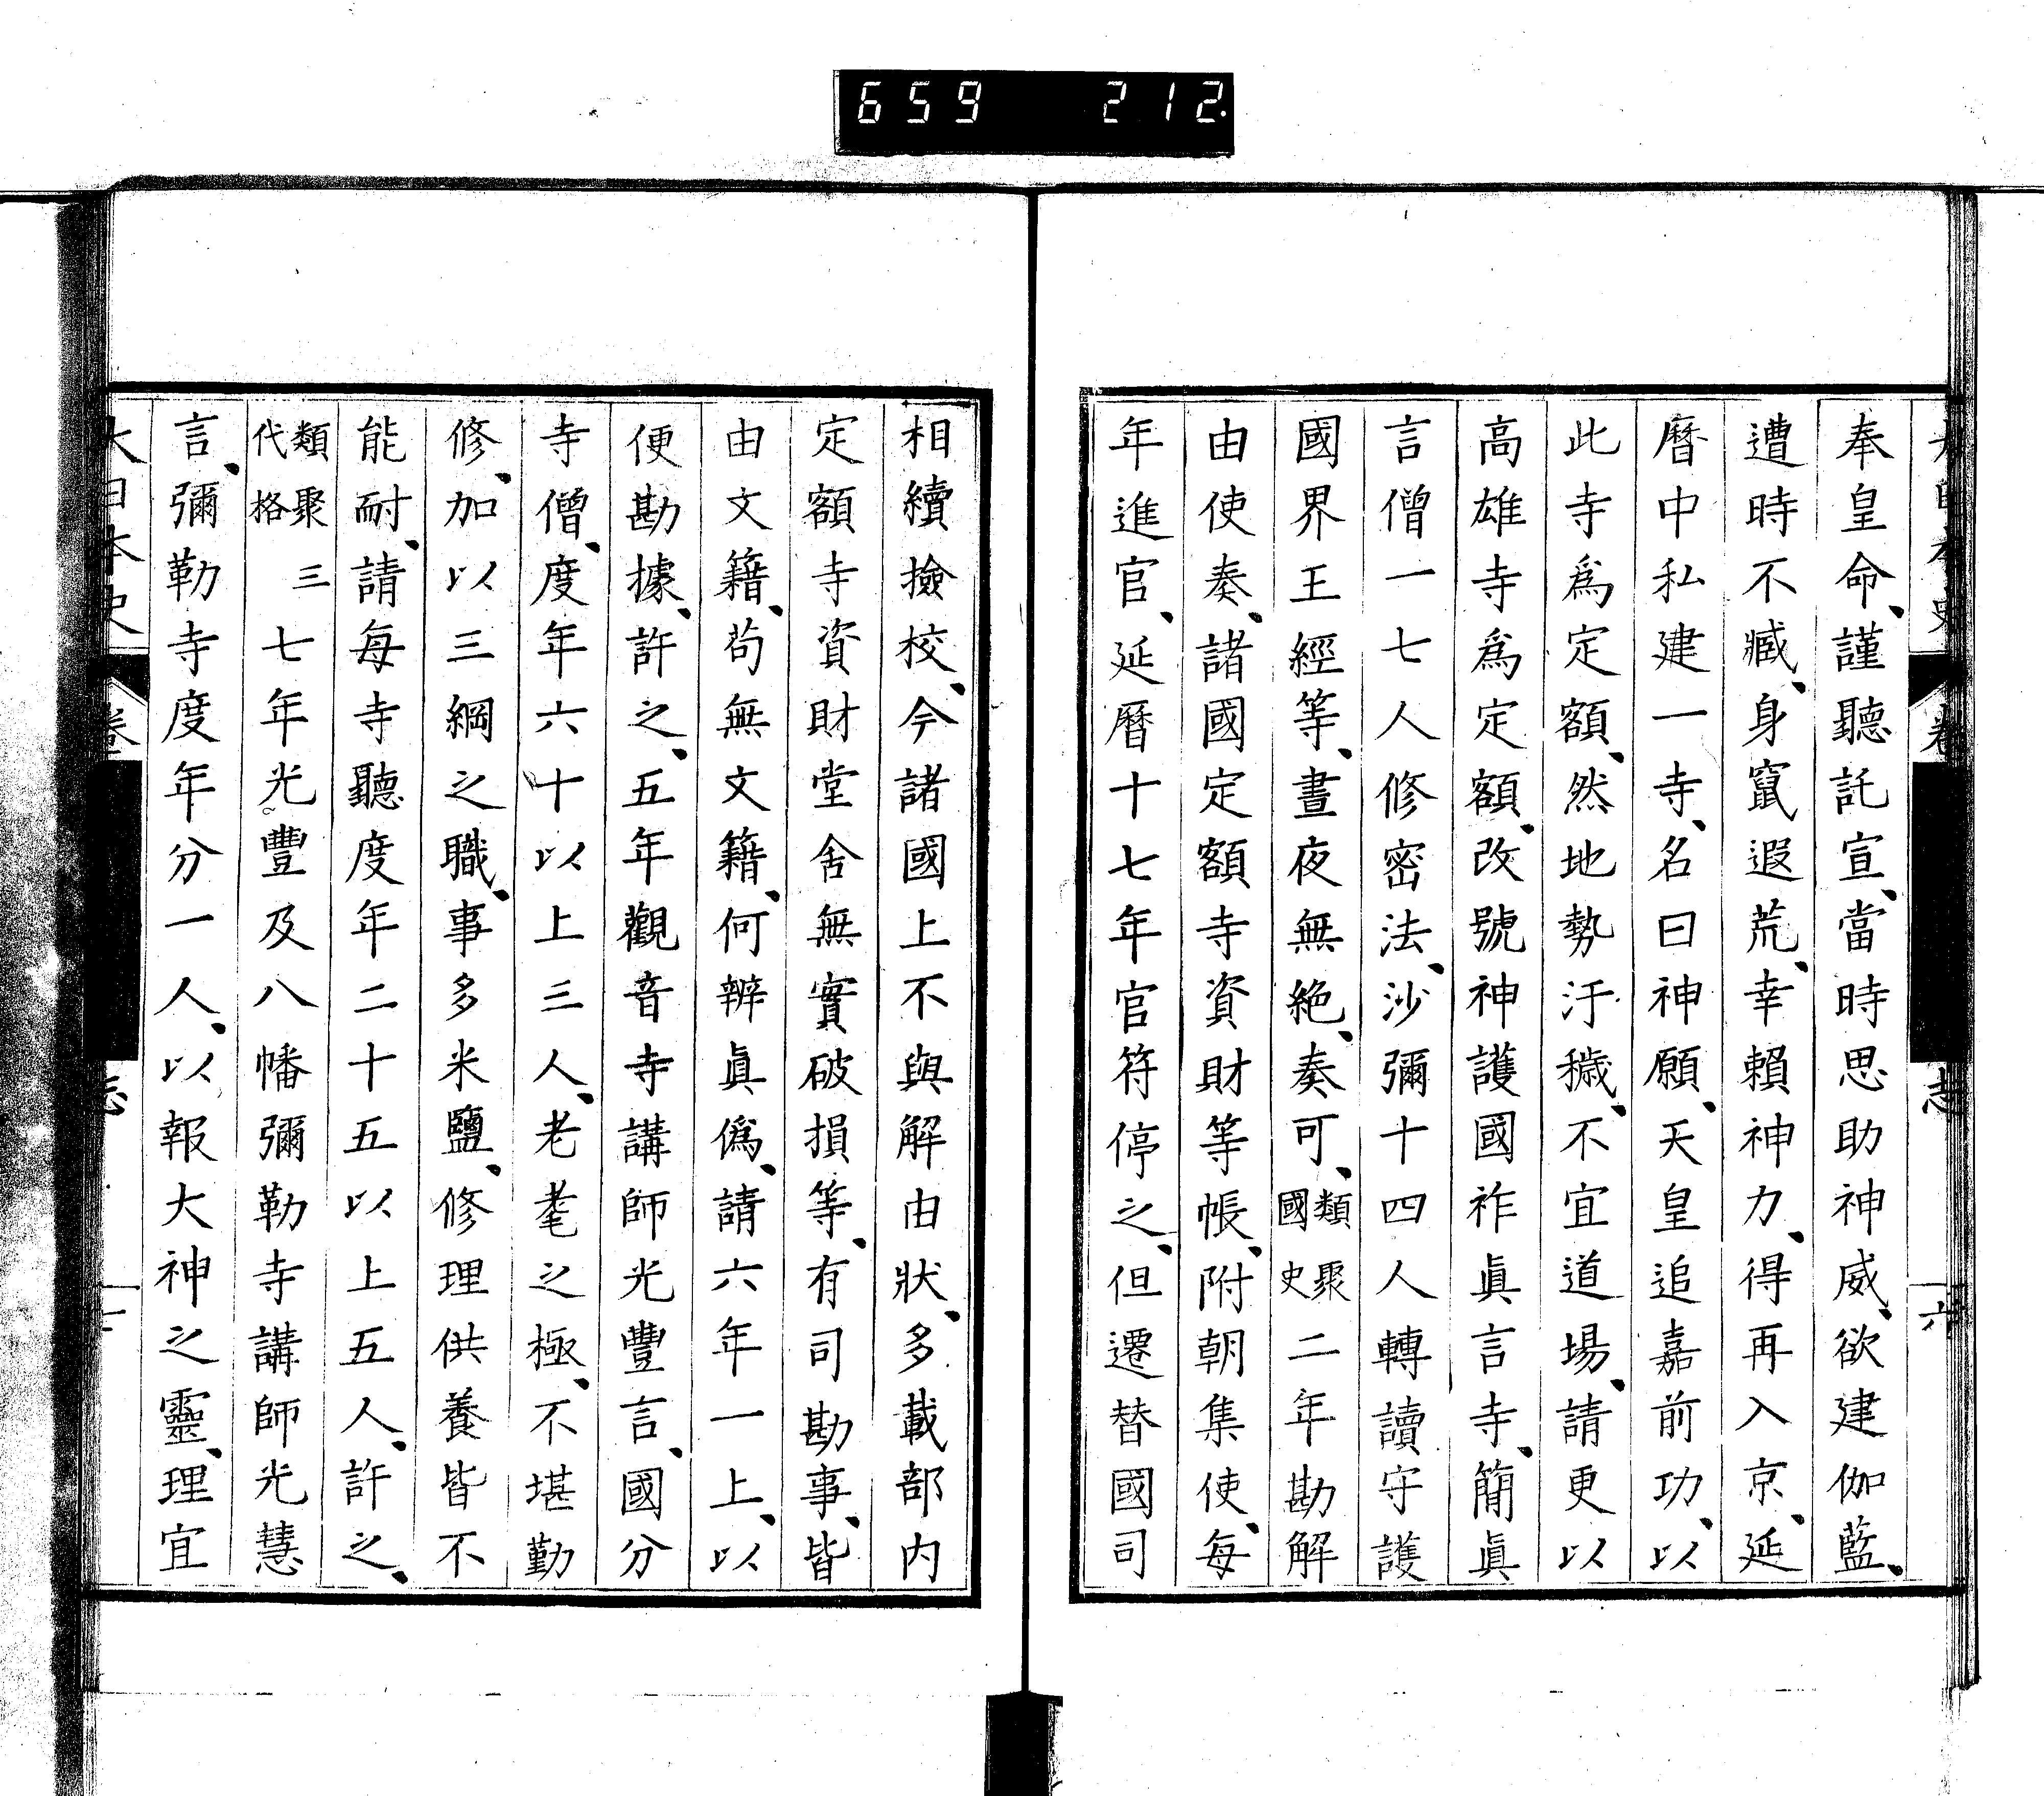 659 212.
奉皇命、謹聽託宣、當時思助神威、欲建伽藍、
遭時不臧、身竄遐荒、幸賴神力、得再入京、延
曆中私建一寺、名曰神願、天皇追嘉前功、以
此寺爲定額、然地勢汙穢、不宜道場、請更以
高雄寺爲定額、改號神護國祚眞言寺、簡眞
言僧一七人修密法、沙彌十四人轉讀守護
國界王經等、晝夜無絶、奏可、類聚國史二年勘解
由使奏、諸國定額寺資財等帳、附朝集使、每
年進官、延曆十七年官符停之、但遷替國司
相續撿校、今諸國上不與解由狀、多載部内
定額寺資財堂舍無實破損等、有司勘事、皆
由文籍、苟無文籍、何辨眞僞、請六年一上、以
便勘據、許之、五年觀音寺講師光豐言、國分
寺僧、度年六十以上三人、老耄之極、不堪勤
修、加以三綱之職、事多米鹽、修理供養皆不
能耐、請每寺聽度年二十五以上五人、許之、
類聚三代格七年光豐及八幡彌勒寺講師光慧
言、彌勒寺度年分一人、以報大神之靈、理宜
大日本史 卷 志